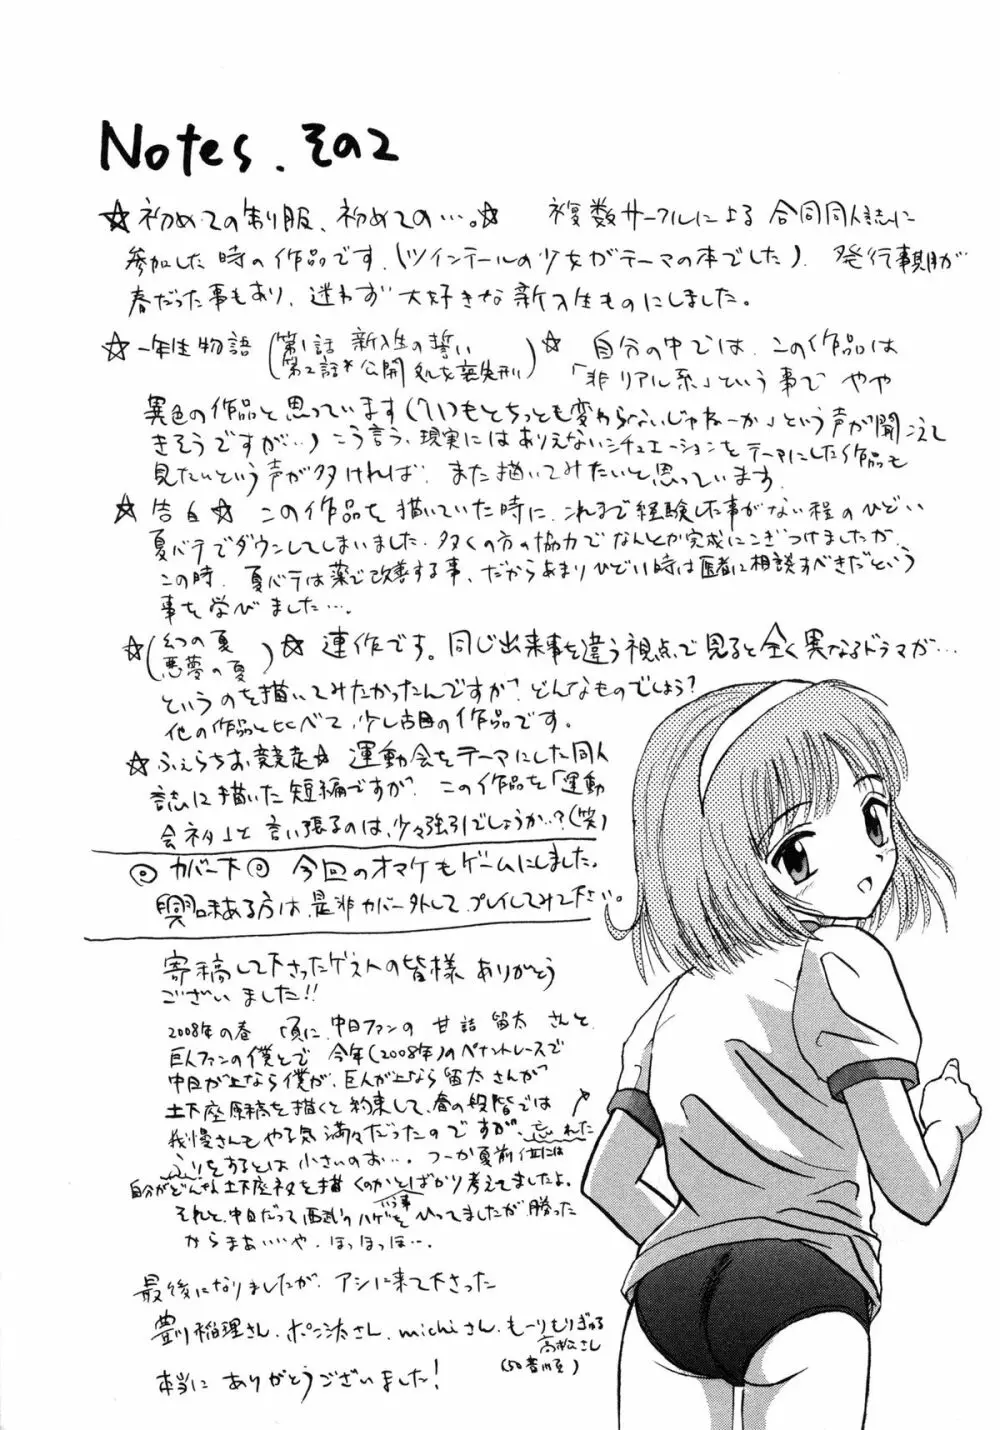 Notes. その2
☆初めての制服、初めての…。☆ 複数サークルによる合同同人誌に
参加した時の作品です。(ツインテールの少女がテーマの本でした)。発行時期が
春だった事もあり、迷わず大好きな新入生ものにしました。
☆一年生物語(第1話 新入生の誓い
第2話 公開処女喪失刑)☆ 自分の中では、この作品は
「非リアル系」という事で やや
異色の作品と思っています(「いつもとちっとも変わらないじゃねーか」という声が聞こえて
きそうですが…)こう言う、現実にはありえないシチュエーションをテーマにした作品も
見たいという声が多ければ、また描いてみたいと思っています。
☆告白☆ この作品を描いていた時に、これまで経験した事がない程のひどい
夏バテでダウンしてしまいました。多くの方の協力でなんとか完成にこぎつけましたが、
この時、夏バテは薬で改善する事、だからあまりひどい時は医者に相談すべきだという
事を学びました…。
☆(幻の夏
悪夢の夏)☆ 連作です。同じ出来事を違う視点で見ると全く異なるドラマが…
というのを描いてみたかったんですが、どんなものでしょう?
他の作品と比べて、少し古目の作品です。
☆ふぇらちお競走☆ 運動会をテーマにした同人
誌に描いた短編ですが、この作品を「運動
会ネタ」と言い張るのは、少々強引でしょうか…?(笑)
◎カバー下◎ 今回のオマケもゲームにしました。
興味ある方は是非カバー外してプレイしてみて下さい。
寄稿して下さったゲストの皆様 ありがとう
ございました!!
2008年の春頃に、中日ファンの甘詰留太さんと
巨人ファンの僕とで 今年(2008年)のペナントレースで
中日が上なら僕が、巨人が上なら留太さんが
土下座原稿を描くと約束して、春の段階では
我慢さんもやる気満々だったのですが、忘れた
ふりをするとは小さいのお…。つーか夏前位には
自分がどんな土下座ネタを描くのかとばかり考えてましたよ。
それと、中日だって西武のハゲを
ひってましたが、勝った
からまぁいいや。ほっほっほ…。
最後になりましたが、アシに来て下さった
豊川稲理さん、ポン汰さん、michiさん、もーりもりぎゅる
高松さん
(50音順)
本当に ありがとうございました!